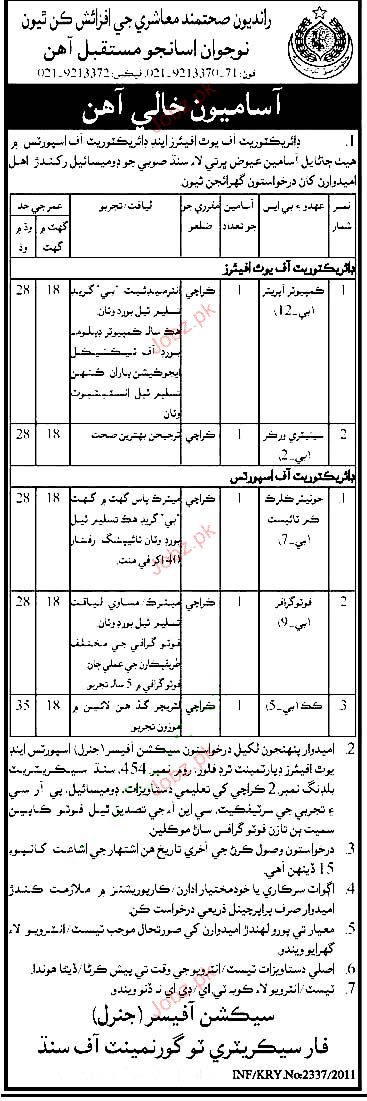 رانديون صحتمند معاشري جي افزائش ڪن ٿيون
نوجوان اسانجو مستقبل آهن
فون: 71-9213370-021، فيڪس: 9213372-021
آساميون خالي آهن
1. ڊائريڪٽوريٽ آف يوٿ افيئرز اينڊ ڊائريڪٽوريٽ آف اسپورٽس ۾
هيٺ ڄاڻايل آسامين عيوض ڀرتي لاءِ سنڌ صوبي جو ڊوميسائيل رکندڙ اهل
اميدوارن کان درخواستون گهرائجن ٿيون.
نمبر شمار | عهدو ۽ بي ايس | آسامين جو تعداد | مقرري جو ضلعو | لياقت/تجربو | عمر جي حد
گهٽ ۾ گهٽ | وڌ ۾ وڌ
ڊائريڪٽوريٽ آف يوٿ افيئرز
1 | ڪمپيوٽر آپريٽر (بي-12) | 1 | ڪراچي | انٽرميڊيئيٽ "بي" گريڊ تسليم ٿيل بورڊ وٽان هڪ سالہ ڪمپيوٽر ڊپلومہ بورڊ آف ٽيڪنيڪل ايجوڪيشن پاران ڪنهن تسليم ٿيل انسٽيٽيوٽ وٽان | 18 | 28
2 | سينيٽري ورڪر (بي-2) | 1 | ڪراچي | ترجيحن بهترين صحت | 18 | 28
ڊائريڪٽوريٽ آف اسپورٽس
1. | جونيئر ڪلارڪ ڪم ٽائپسٽ (بي-7) | 1 | ڪراچي | ميٽرڪ پاس گهٽ ۾ گهٽ "بي" گريڊ هڪ تسليم ٿيل بورڊ وٽان ٽائيپنگ رفتار 40 اکر في منٽ. | 18 | 28
2 | فوٽوگرافر (بي-9) | 1 | ڪراچي | ميٽرڪ/ مساوي لياقت تسليم ٿيل بورڊ وٽان فوٽو گرافي جي مختلف طريقيڪارن جي عملي ڄاڻ فوٽو گرافي ۾ 5 سالہ تجربو | 18 | 28
3 | ڪڪ (بي-5) | 1 | ڪراچي | لٽريچر گڏ هن لائين ۾ موزون تجربو | 18 | 35
2. اميدوار پنهنجون لکيل درخواستون سيڪشن آفيسر (جنرل) اسپورٽس اينڊ
يوٿ افيئرز ڊپارٽمينٽ ٿرڊ فلور، روم نمبر 454، سنڌ سيڪريٽريٽ
بلڊنگ نمبر 2 ڪراچي کي تعليمي دستاويزات، ڊوميسائيل، پي آر سي
۽ تجربي جي سرٽيفڪيٽ، سي اين آءِ جي تصديق ٿيل فوٽو ڪاپين
سميت ٻن تازن فوٽو گرافس سان موڪلين.
3. درخواستون وصول ڪرڻ جي آخري تاريخ هن اشتهار جي اشاعت کانپوءِ
15 ڏينهن آهي.
4. اڳواٽ سرڪاري يا خودمختيار ادارن/ ڪارپوريشنز ۾ ملازمت ڪندڙ
اميدوار صرف پراپر چينل ذريعي درخواست ڪن.
5. معيار تي پورو لهندڙ اميدوارن کي صورتحال موجب ٽيسٽ/ انٽرويو لاءِ
گهرايو ويندو.
6. اصلي دستاويزات ٽيسٽ/ انٽرويو جي وقت تي پيش ڪرڻا/ ڏيڻا هوندا.
7. ٽيسٽ/ انٽرويو لاءِ ڪوبہ ٽي اي/ ڊي اي نہ ڏنو ويندو.
سيڪشن آفيسر (جنرل)
فار سيڪريٽري ٽو گورنمينٽ آف سنڌ
INF/KRY.No:2337/2011
Jobz.pk